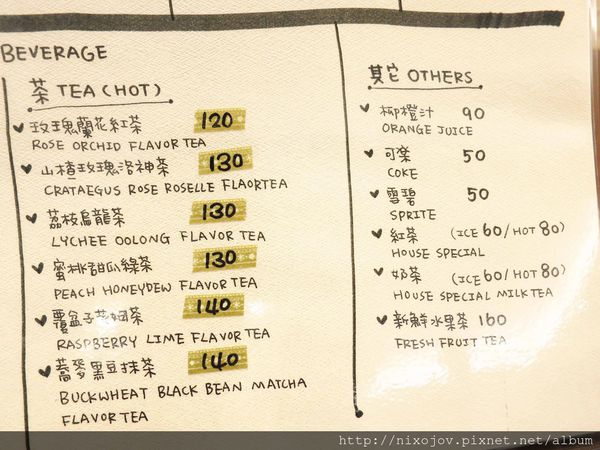 BEVERAGE
茶 TEA (HOT)
玫瑰蘭花紅茶 120
ROSE ORCHID FLAVOR TEA
山楂玫瑰洛神茶 130
CRATAEGUS ROSE ROSELLE FLAORTEA
荔枝烏龍茶 130
LYCHEE OOLONG FLAVOR TEA
蜜桃甜瓜綠茶 130
PEACH HONEYDEW FLAVOR TEA
覆盆子萊姆茶 140
RASPBERRY LIME FLAVOR TEA
蕎麥黑豆抹茶 140
BUCKWHEAT BLACK BEAN MATCHA
FLAVOR TEA
其它 OTHERS
柳橙汁 90
ORANGE JUICE
可樂 50
COKE
雪碧 50
SPRITE
紅茶 (ICE 60/HOT 80)
HOUSE SPECIAL
奶茶 (ICE 60/HOT 80)
HOUSE SPECIAL MILK TEA
新鮮水果茶 160
FRESH FRUIT TEA
http://nixojov.pixnet.net/album